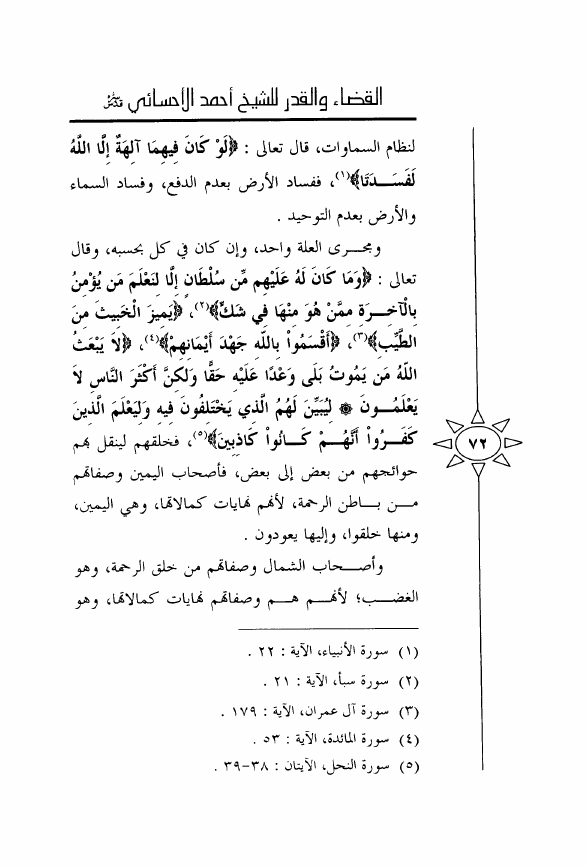 القضاء والقدر للشيخ أحمد الأحسائي قدس سره
لنظام السماوات، قال تعالى : ﴿لَوْ كَانَ فِيهِمَا آلِهَةٌ إِلَّا اللَّهُ
لَفَسَدَتَا﴾(١)، ففساد الأرض بعدم الدفع، وفساد السماء
والأرض بعدم التوحيد .
ومجرى العلة واحد، وإن كان في كل بحسبه، وقال
تعالى : ﴿وَمَا كَانَ لَهُ عَلَيْهِم مِّن سُلْطَانٍ إِلَّا لِنَعْلَمَ مَن يُؤْمِنُ
بِالْآخِرَةِ مِمَّنْ هُوَ مِنْهَا فِي شَكٍّ﴾(٢)، ﴿يَمِيزَ الْخَبِيثَ مِنَ
الطَّيِّبِ﴾(٣)، ﴿أَقْسَمُواْ بِاللَّهِ جَهْدَ أَيْمَانِهِمْ﴾(٤)، ﴿لاَ يَبْعَثُ
اللَّهُ مَن يَمُوتُ بَلَى وَعْدًا عَلَيْهِ حَقًّا وَلَكِنَّ أَكْثَرَ النَّاسِ لاَ
يَعْلَمُونَ ۞ لِيُبَيِّنَ لَهُمُ الَّذِي يَخْتَلِفُونَ فِيهِ وَلِيَعْلَمَ الَّذِينَ
كَفَرُواْ أَنَّهُمْ كَانُواْ كَاذِبِينَ﴾(٥)، فخلقهم لينقل بهم
حوائجهم من بعض إلى بعض، فأصحاب اليمين وصفاتهم
من باطن الرحمة، لأنهم نهايات كمالاتها، وهي اليمين،
ومنها خلقوا، وإليها يعودون .
وأصحاب الشمال وصفاتهم من خلق الرحمة، وهو
الغضب؛ لأنهم هم وصفاتهم نهايات كمالاتها، وهو
(١) سورة الأنبياء، الآية : ٢٢ .
(٢) سورة سبأ، الآية : ٢١ .
(٣) سورة آل عمران، الآية : ١٧٩ .
(٤) سورة المائدة، الآية : ٥٣ .
(٥) سورة النحل، الآيتان : ٣٨-٣٩ .
٧٢